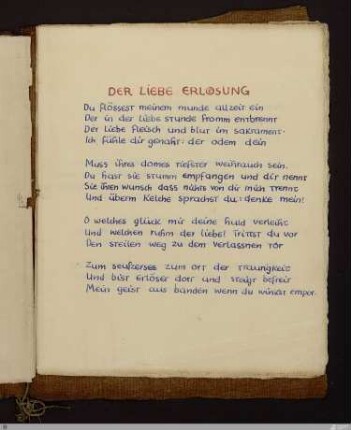 DER LIEBE ERLOSUNG
Du flössest meinem munde allzeit ein
Der in der liebe stunde fromm entbrennt
Der liebe fleisch und blut im sakrament·
Ich fühle dir genaht: der odem dein
Muss ihres domes tiefster weihrauch sein.
Du hast sie stumm empfangen und dir nennt
Sie ihren wunsch dass nichts von dir mich trennt
Und überm kelche sprachst du: denke mein!
O welches glück mir deine huld verleiht
Und welchen ruhm der liebe! Trittst du vor
Den steilen weg zu dem verlassnen tor
Zum seufzersee zum ort der traurigkeit
Und bist erlöser dort und steigst befreit
Mein geist aus banden wenn du winkst empor.